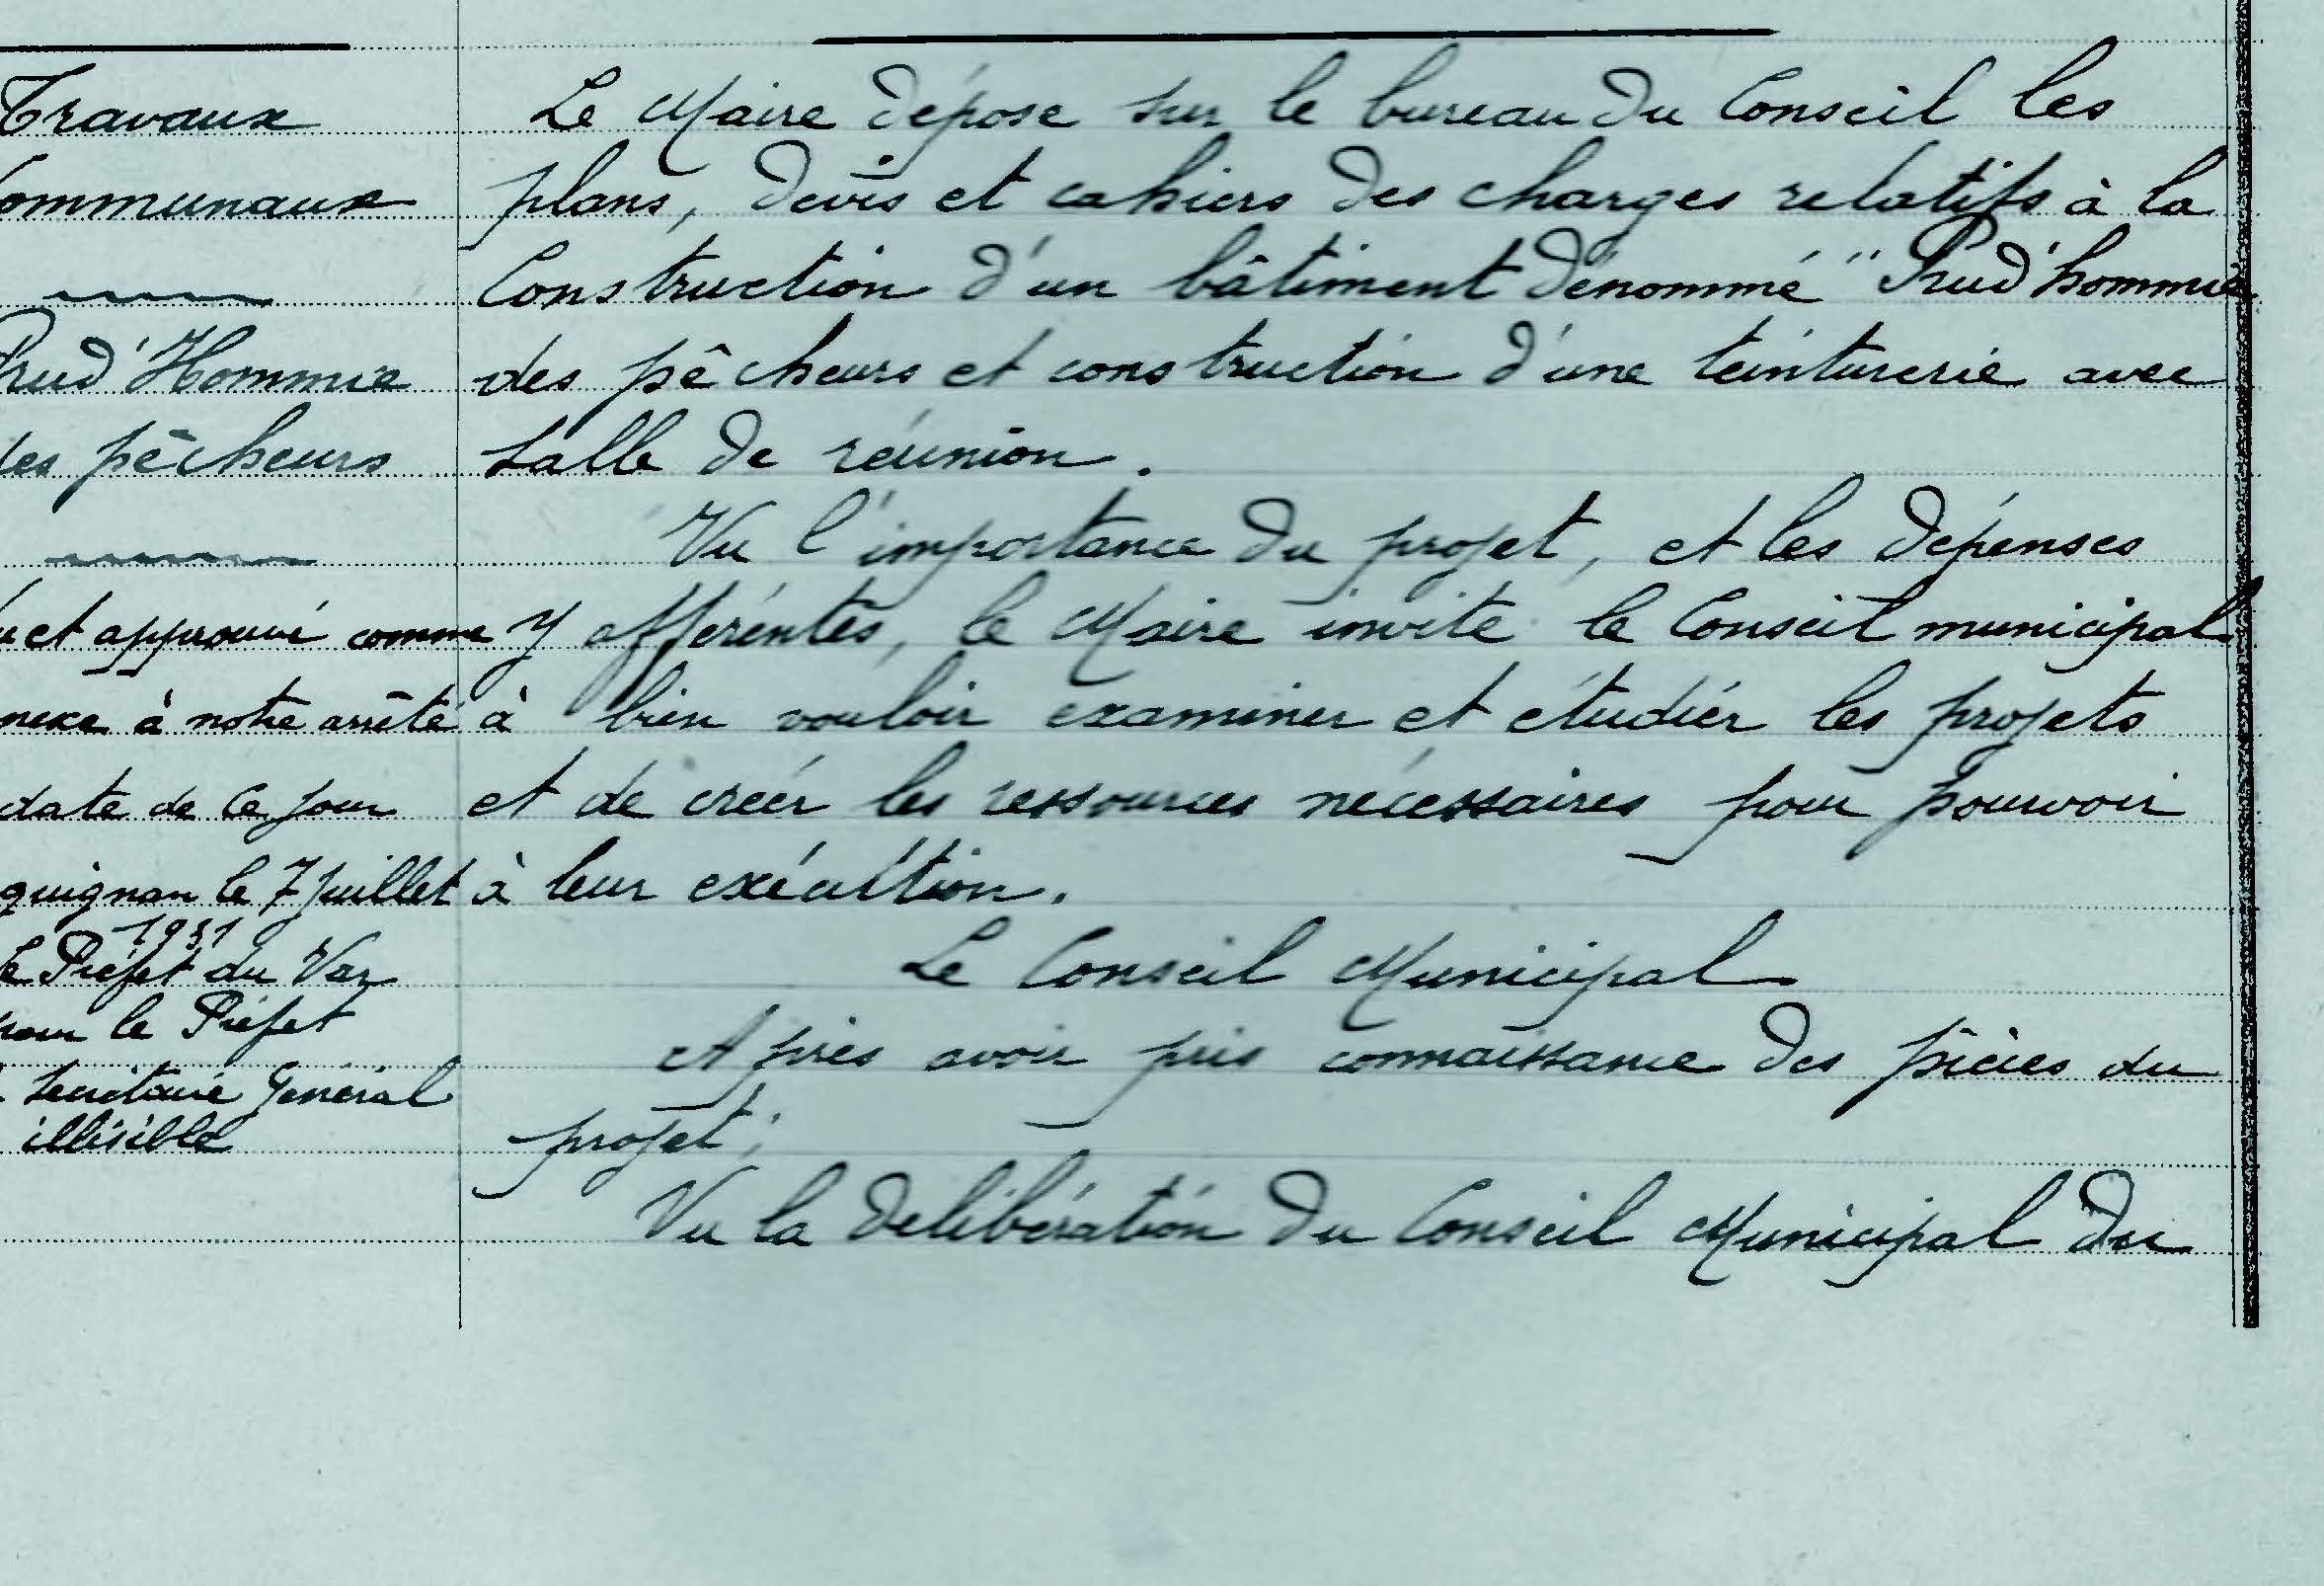 Travaux
ommunaux
Prud'Hommie
des pêcheurs
et approuvé comme
nexe à notre arrêté
date de ce jour
guignan le 7 juillet
1931
le Préfet du Var
pour le Préfet
Secrétaire Général
illisible
Le Maire dépose sur le bureau du Conseil les
plans, devis et cahiers des charges relatifs à la
Construction d'un bâtiment dénommé "Prud'hommie
des pêcheurs et construction d'une teinturerie avec
salle de réunion.
Vu l'importance du projet, et les dépenses
y afférentes, le Maire invite le Conseil municipal
à bien vouloir examiner et étudier les projets
et de créer les ressources nécessaires pour pourvoir
à leur exécution.
Le Conseil Municipal
Après avoir pris connaissance des pièces du
projet;
Vu la délibération du Conseil Municipal du